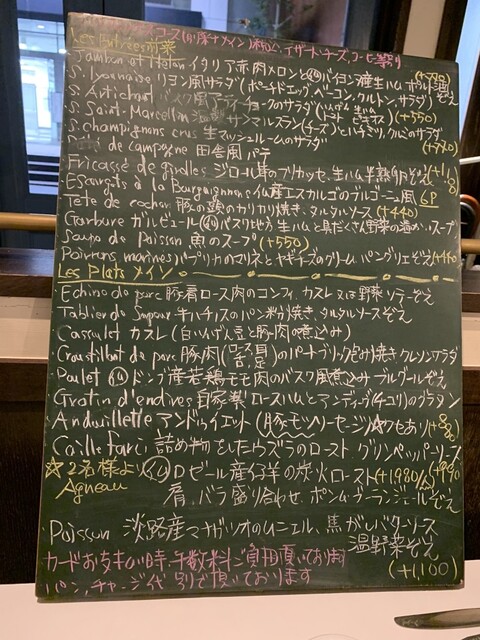 コース(前菜+メイン)
Les Entrées 前菜
Jambon et Melon イタリア赤肉メロンとバイヨンヌ産生ハム ポルト酒ぞえ (+770)
S. Lyonnaise リヨン風サラダ(ポーチドエッグ、ベーコン、クルトン、サラダ)
S. Artichaut バスク風アーティチョークのサラダ (+550)
S. Saint-Marcellin サンマルスラン(チーズ)とハチミツ、クルミのサラダ
S. champignons crus 生マッシュルームのサラダ (+770)
Pâté de Campagne 田舎風パテ
Fricassé de girolles ジロール茸のフリカッセ、生ハム、半熟卵ぞえ
Escargots à la Bourguignonne 仏産エスカルゴのブルゴーニュ風 6P
Tête de cochon 豚の頭のカリカリ焼き、タルタルソース (+440)
Garbure ガルビュール バスク地方 生ハムと具だくさん野菜の温かいスープ
Soupe de Poisson 魚のスープ (+550)
Poivrons marinés パプリカのマリネとヤギチーズのクリーム、パングリエぞえ
Les Plats メイン
Echine de porc 豚肩ロース肉のコンフィ、カスレ又は野菜ソテーぞえ
Tablier de Sapeur 牛ハチノスのパン粉焼き、タルタルソースぞえ
Cassoulet カスレ (白いんげん豆と豚肉の煮込み)
Croustillant de porc 豚肉のパートブリック包み焼き クレソンサラダ
Poulet ドンブ産若鶏モモ肉のバスク風煮込み ブルグールぞえ
Gratin d'endives 自家製ロースハムとアンディーブ(チコリ)のグラタン
Andouillette アンドゥイエット(豚モツソーセージ)
Caille farci 詰め物をしたウズラのロースト、グリンペッパーソース
☆2名様より ロゼール産仔羊の炭火ロースト (+1,980/
Agneau 肩、バラ盛り合わせ、ポンムブーランジェールぞえ
Poisson 淡路産マナガツオのムニエル、焦がしバターソース
温野菜ぞえ (+1,100)
カードお支払い時、手数料ご負担頂いております
パン、チャージ代 別で頂いております